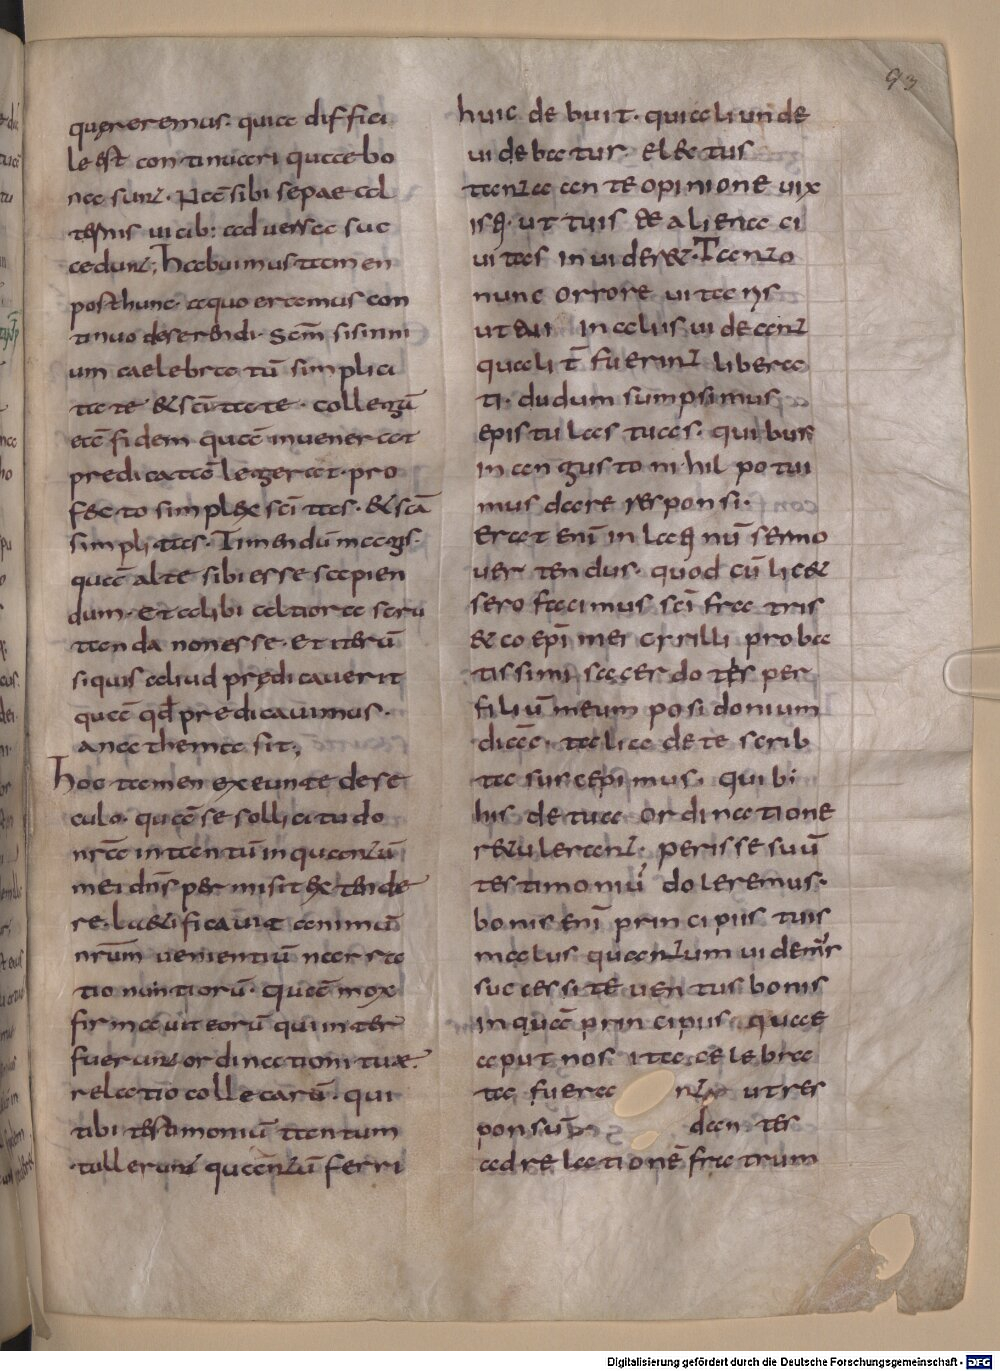 93
quęreremus. quia diffici
le est continuari quae bo
na sunt. Nā sibi sepae al
ternis uicib: aduersa suc
cedunt; Habuimus tamen
post hunc. aequo eramus con
tinuo deserendi. Scm̄ sisinni
um caelebra tū simplici
tate & scītate. collegū
etā fidem quā inuenerat
predicatā legerat. pro
fecto simplex scītas. & scā
simplitas. Timendū magis
quā alte sibi esse sapien
dum. Et alibi altiora scru
tanda non esse. Et iterū
si quis aliud prędicauerit
quā qđ predicauimus.
anathema sit;
Hoc tamen exeunte de se
culo. quā se sollicitudo
nrā in tantū in quantū
mei dn̄s permisit extende
re. laetificauit animū
nrūm uenientiū narra
tio nuntiorū. quā mox
firmauit eorū qui inter
fuerunt ordinationi tuae.
relatio collecarū. qui
tibi testimoniū tantum
tullerunt quāntū ferri
huic debuit. qui aliunde
uidebatur. Electus
tanta ante opinione uix
isq. ut tuis & aliena ci
uitas inuideret. Tanto
nunc orrore uitan̄s
ut eui in aluis uideant
quali t̄ fuerint libera
ti. dudum sumpsimus
epistulas tuas. quibus
in angusto nihil potui
mus dare responsi.
Erat enī in laq nū sermo
uertendus. quod cū lic&
sero facimus scī fratris
& coepī mei cyrilli proba
tissimi sacerdotes per
filiū meum posidonium
diacō. talia de te scrib
ta suscepimus. qui b:
his de tua ordinatione
r&ulerant. perisse suū
testimoniū doleremus.
bonis enī principiis tuis
malus quantum uidem̄s
successit euentus bonis
inquā principiis quae
aput nos ita celebra
ta fuera nt ut res
ponsū dantes
ad relationē fratrum
Digitalisierung gefördert durch die Deutsche Forschungsgemeinschaft - DFG